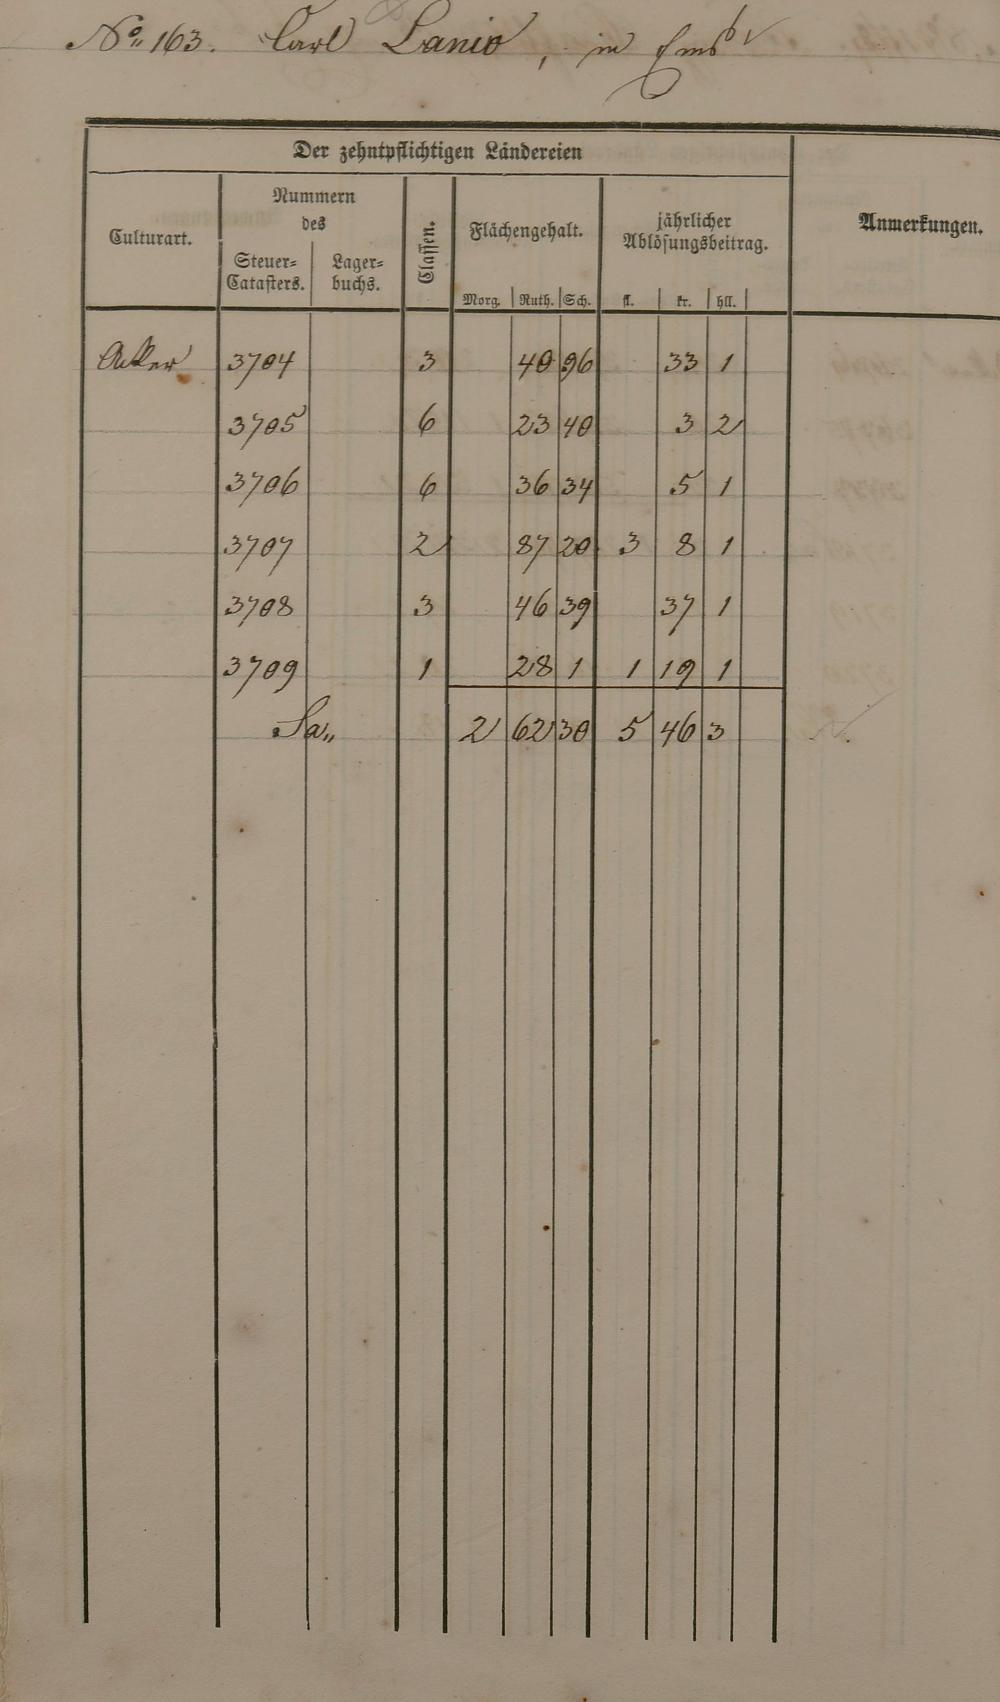 No. 163. Carl Lanio, in Ems
Der zehntpflichtigen Ländereien
Culturart.
Nummern
des
Steuer=
Catasters.
Lager=
buchs.
Classen.
Flächengehalt.
Morg. Ruth. Sch.
jährlicher
Ablösungsbeitrag.
fl. kr. hll.
Anmerkungen.
Acker 3704 3 40 96 33 1
3705 6 23 40 3 2
3706 6 36 34 5 1
3707 2 87 20 3 8 1
3708 3 46 39 37 1
3709 1 28 1 1 19 1
Sa„ 2 62 30 5 46 3